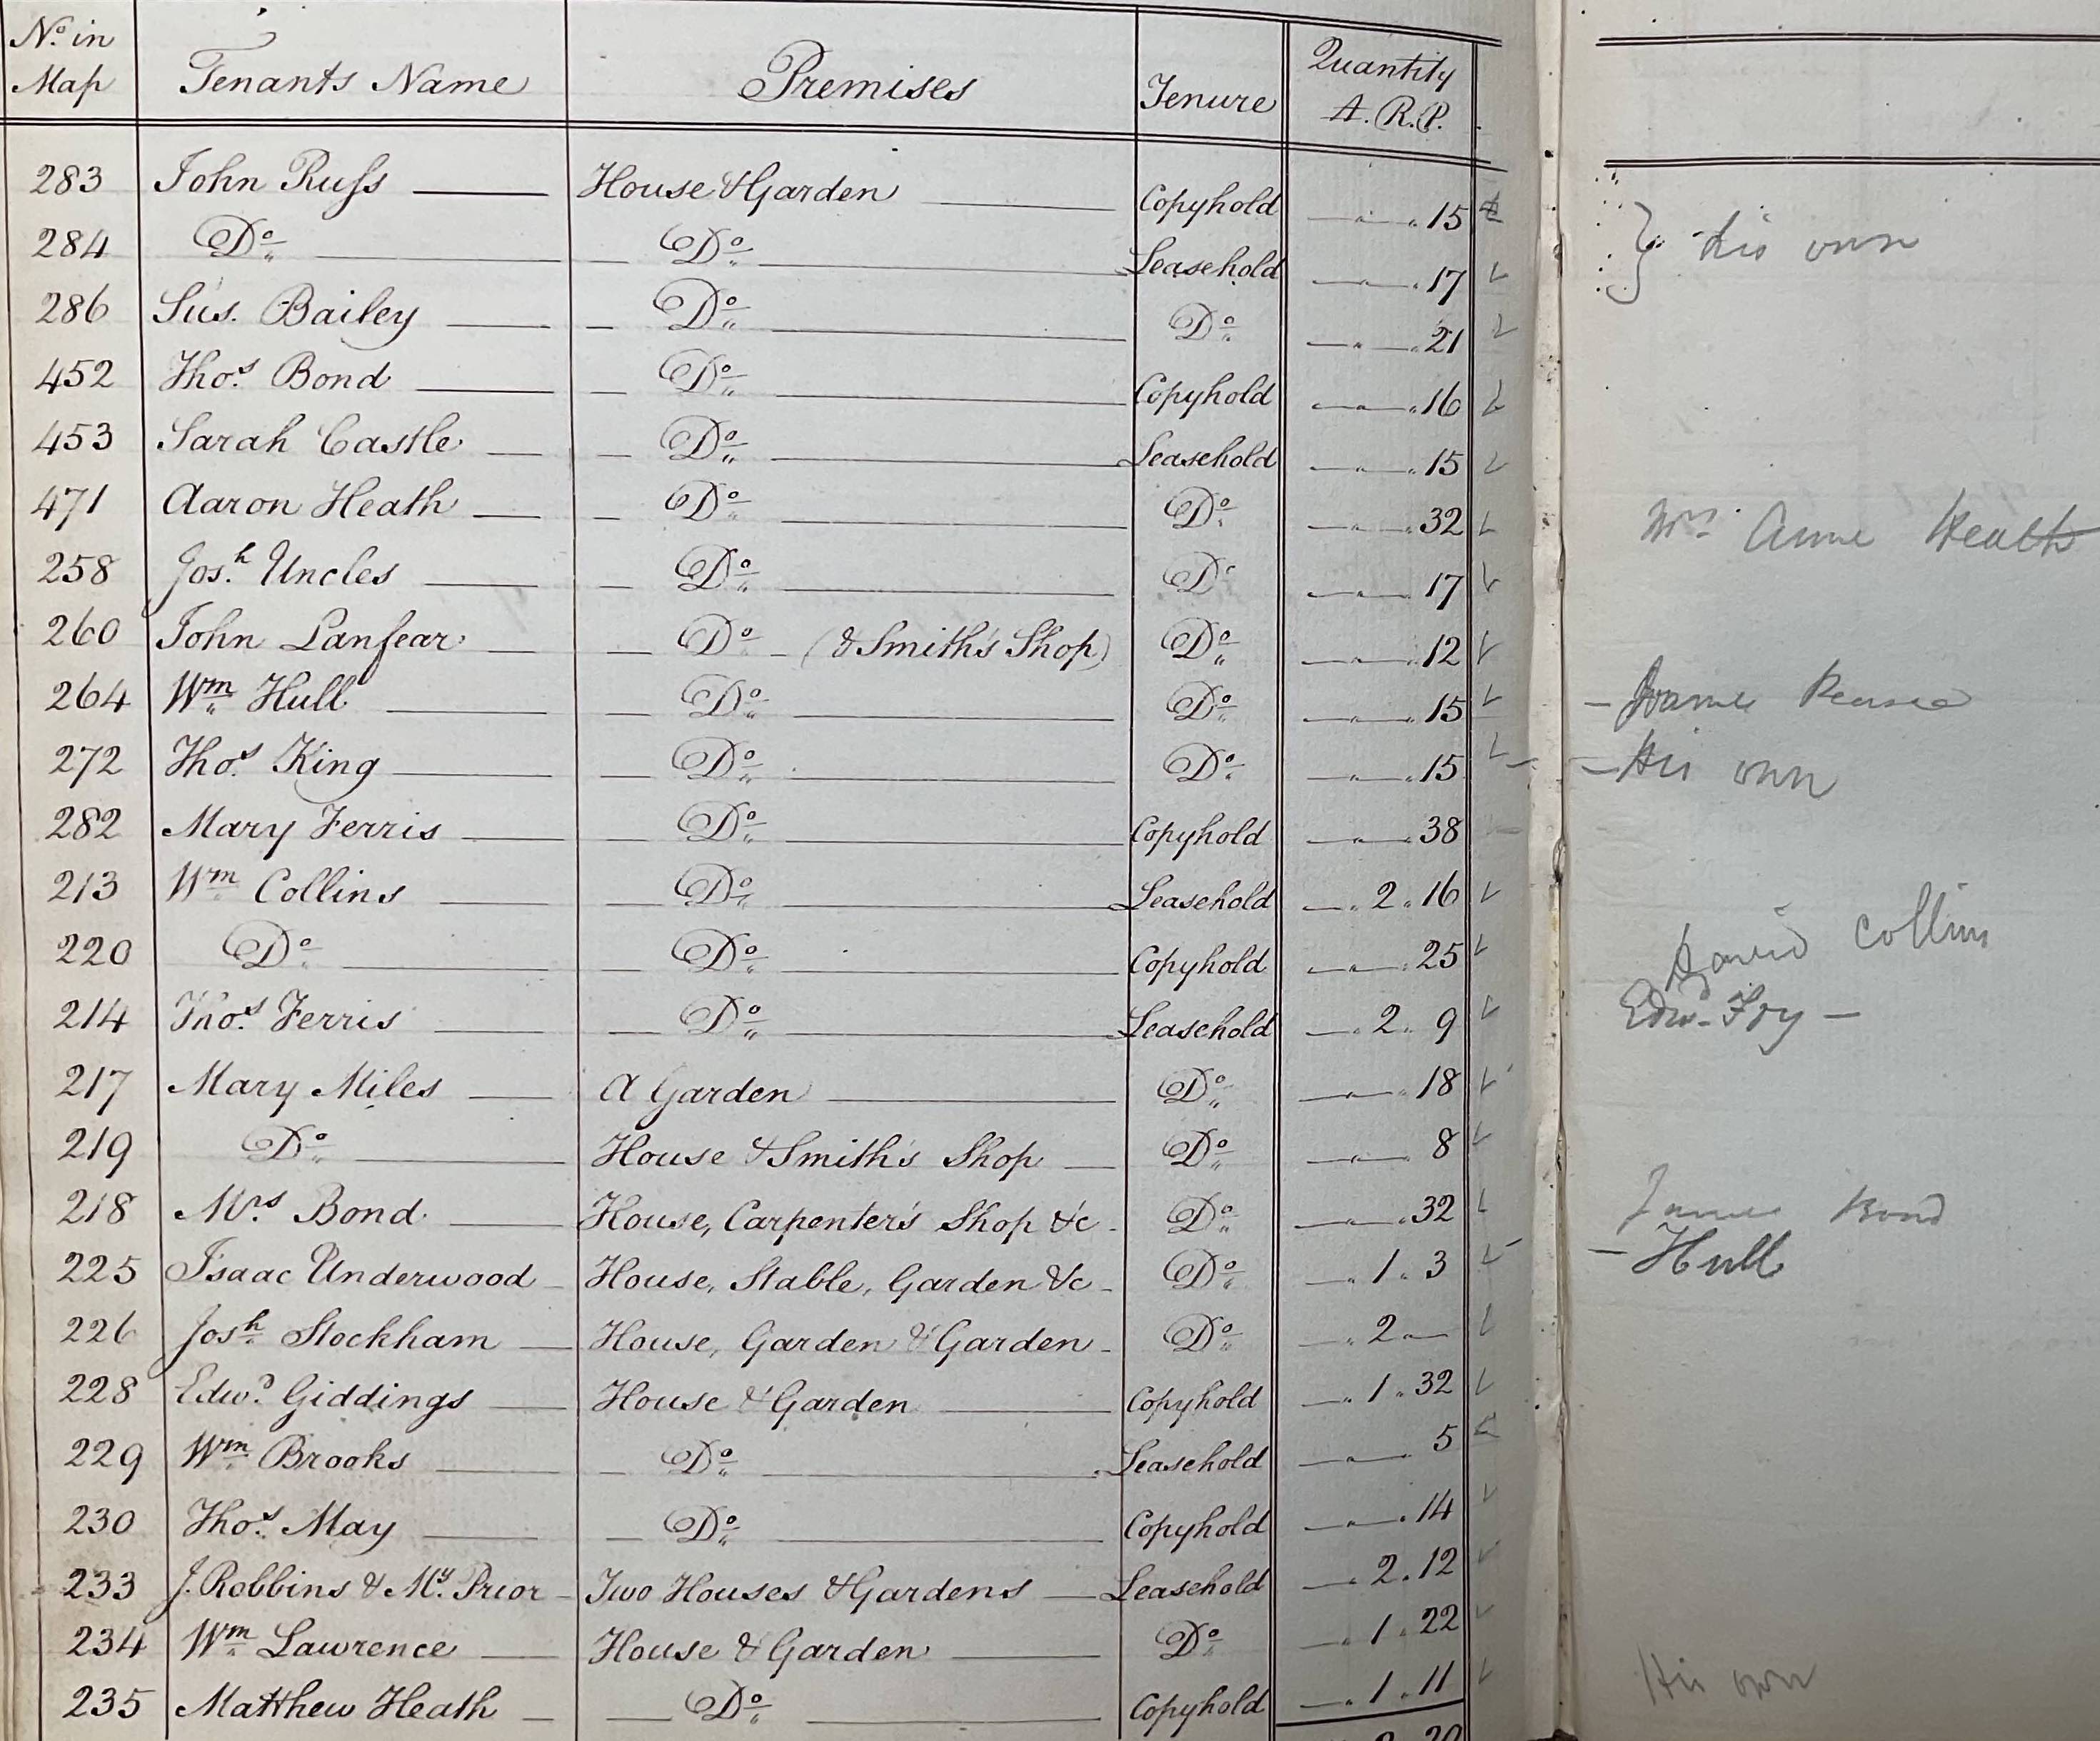 No. in Map Tenants Name Premises Tenure Quantity A. R. P.
283 John Russ House & Garden Copyhold 15
his own
284 Do. Do. Leasehold 17
286 Sus. Bailey Do. Do. 21
452 Thos. Bond Do. Copyhold 16
453 Sarah Castle Do. Leasehold 15
471 Aaron Heath Do. Do. 32 Mrs. Anne Heath
258 Josh. Uncles Do. Do. 17
260 John Lanfear Do. (& Smith's Shop) Do. 12
264 Wm. Hull Do. Do. 15
272 Thos. King Do. Do. 15 His own
282 Mary Ferris Do. Copyhold 38
213 Wm. Collins Do. Leasehold 2. 16
220 Do. Do. Copyhold 25 David Collins
214 Thos. Ferris Do. Leasehold 2. 9 Edw. Fry
217 Mary Miles A Garden Do. 18
219 Do. House & Smith's Shop Do. 8
218 Mrs. Bond House, Carpenter's Shop &c Do. 32 James Bond
225 Isaac Underwood House, Stable, Garden &c Do. 1. 3 Hull
226 Josh. Stockham House, Garden & Garden Do. 2
228 Edwd. Giddings House & Garden Copyhold 1. 32
229 Wm. Brooks Do. Leasehold 5
230 Thos. May Do. Copyhold 14
233 J. Robbins & My. Prior Two Houses & Gardens Leasehold 2. 12
234 Wm. Lawrence House & Garden Do. 1. 22
235 Matthew Heath Do. Copyhold 1. 11 His own